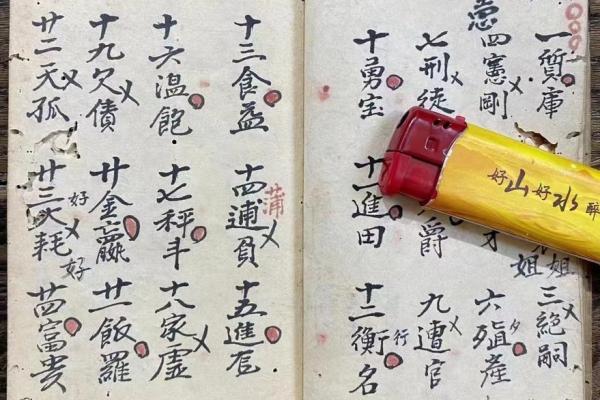 一質庫
姐姐
三絕嗣
四憲剛
才
六殖產
夕
七刑徒
爵
九遭官
十勇宝
十一進田
十二衡名
行
十三食益
十四逋負
蒲
十五進
十六溫飽
十七秤斗
十八家虛
十九欠債
廿金嬴
廿一飯羅
廿二天孤
廿三耗
好
好
廿四富貴
好山好水醉